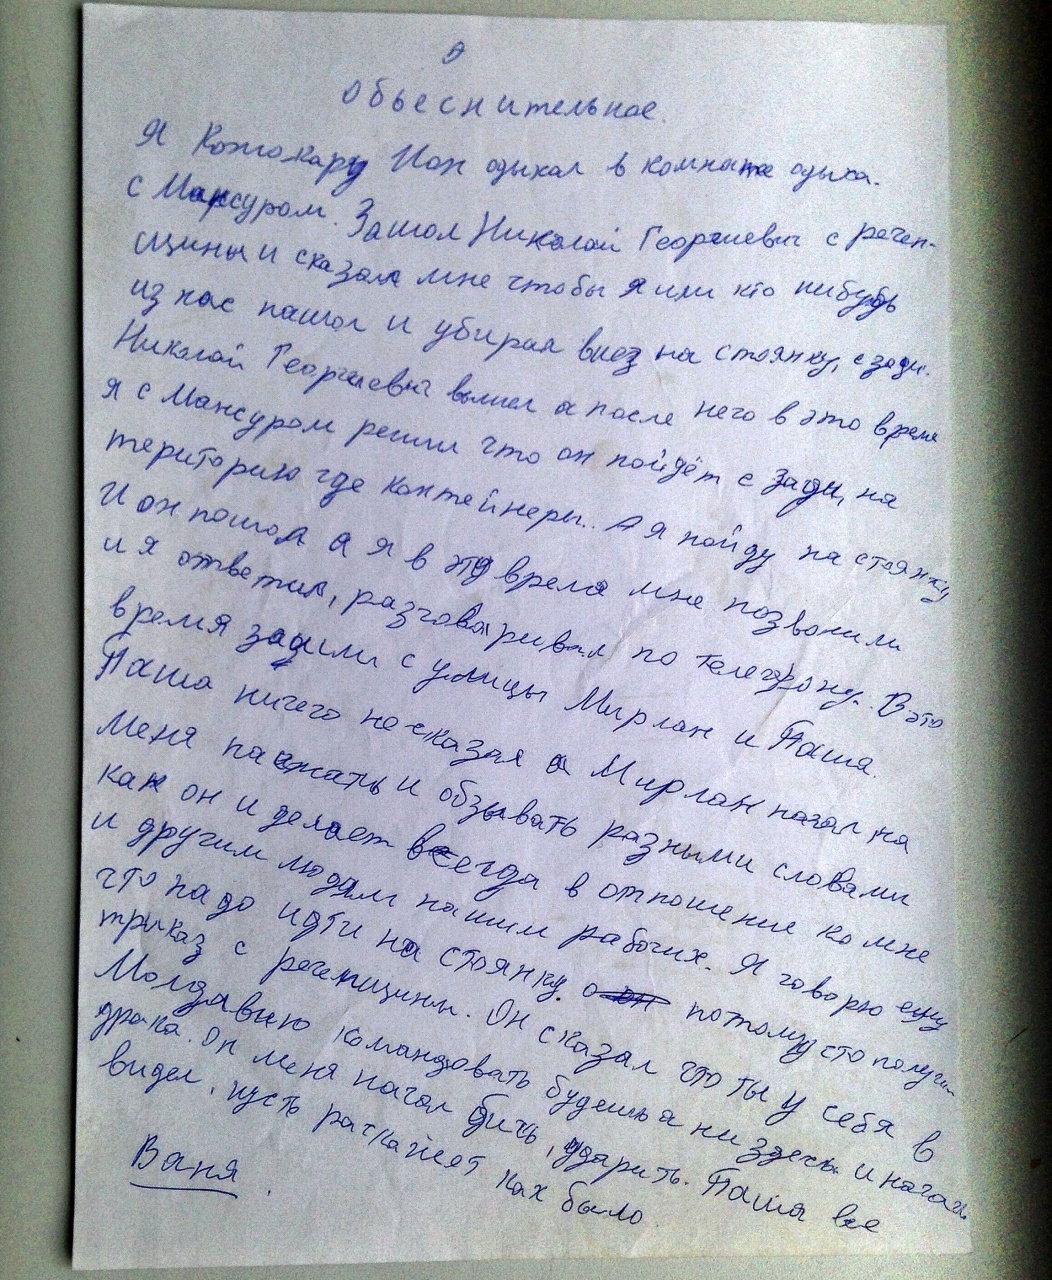 Обьеснительное.
Я Кожокару Ион одыхал в комнате одыха.
с Мансуром. Зашол Николай Георгиевич с речеп-
щины и сказал мне чтобы я или кто нибудь
из нас пашол и убирал внез на стоянку, с зади.
Николай Георгиевич вышел а после него в это время
я с Мансуром решил что он пойдёт с зади, на
територию где контейнеры.. А я пойду на стоянку
И он пошол а я в это время мне позвонили
и я ответил, разговаривал по телефону. В это
время зашли с улицы Мирлан и Паша.
Паша ничего не сказал а Мирлан начал на
меня наежать и обзывать разными словами
как он и делает всегда в отношение ко мне
и другим людям нашим рабочих. Я говорю ему
что надо идти на стоянку. потомусто получил
приказ с речепщины. Он сказал что ты у себя в
Молдавию командовать будешь а ни здесь и началь
драка. Он меня начал бичь, ударить. Паша все
видел, пусть раскажет как было
Ваня.